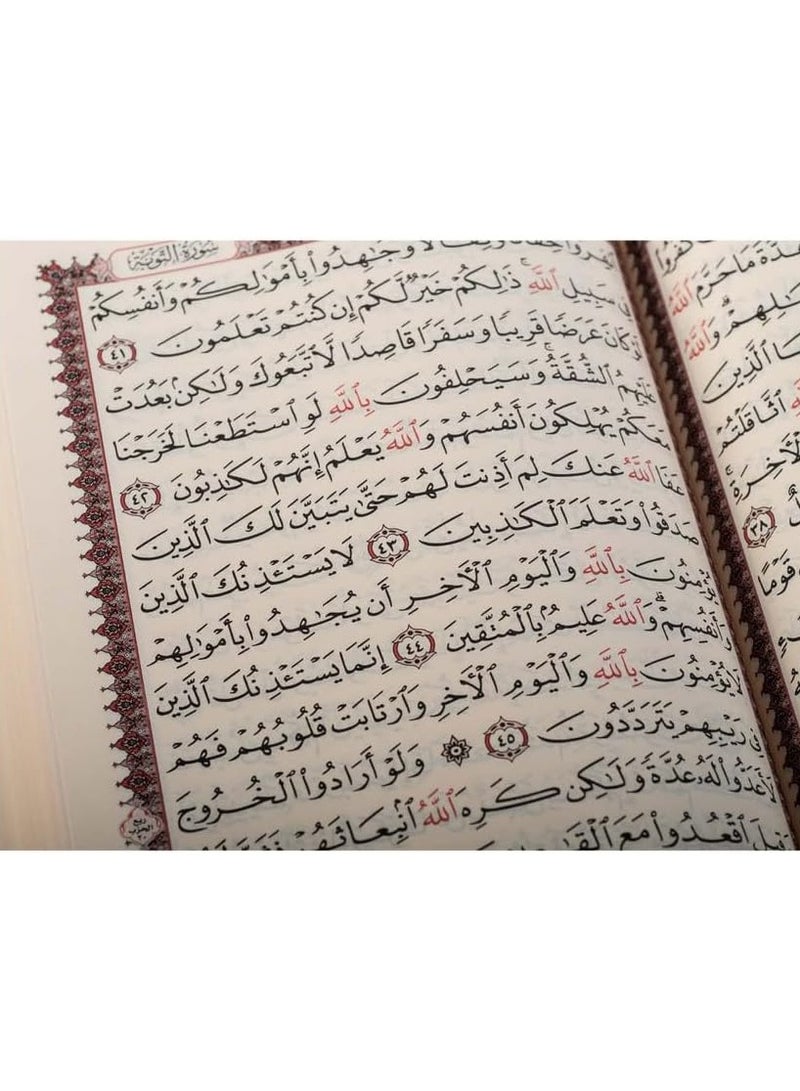 سُورَةُ التَّوْبَةِ
وَجَٰهِدُوا۟ بِأَمْوَٰلِكُمْ وَأَنفُسِكُمْ
فِى سَبِيلِ ٱللَّهِ ۚ ذَٰلِكُمْ خَيْرٌ لَّكُمْ إِن كُنتُمْ تَعْلَمُونَ ٤١
لَوْ كَانَ عَرَضًا قَرِيبًا وَسَفَرًا قَاصِدًا لَّٱتَّبَعُوكَ وَلَٰكِنۢ بَعُدَتْ
عَلَيْهِمُ ٱلشُّقَّةُ ۚ وَسَيَحْلِفُونَ بِٱللَّهِ لَوِ ٱسْتَطَعْنَا لَخَرَجْنَا
مَعَكُمْ يُهْلِكُونَ أَنفُسَهُمْ وَٱللَّهُ يَعْلَمُ إِنَّهُمْ لَكَٰذِبُونَ ٤٢
عَفَا ٱللَّهُ عَنكَ لِمَ أَذِنتَ لَهُمْ حَتَّىٰ يَتَبَيَّنَ لَكَ ٱلَّذِينَ
صَدَقُوا۟ وَتَعْلَمَ ٱلْكَٰذِبِينَ ٤٣ لَا يَسْتَـْٔذِنُكَ ٱلَّذِينَ
يُؤْمِنُونَ بِٱللَّهِ وَٱلْيَوْمِ ٱلْـَٔاخِرِ أَن يُجَٰهِدُوا۟ بِأَمْوَٰلِهِمْ
وَأَنفُسِهِمْ ۗ وَٱللَّهُ عَلِيمٌۢ بِٱلْمُتَّقِينَ ٤٤ إِنَّمَا يَسْتَـْٔذِنُكَ ٱلَّذِينَ
لَا يُؤْمِنُونَ بِٱللَّهِ وَٱلْيَوْمِ ٱلْـَٔاخِرِ وَٱرْتَابَتْ قُلُوبُهُمْ فَهُمْ
فِى رَيْبِهِمْ يَتَرَدَّدُونَ ٤٥ ۞ وَلَوْ أَرَادُوا۟ ٱلْخُرُوجَ
لَأَعَدُّوا۟ لَهُۥ عُدَّةً وَلَٰكِن كَرِهَ ٱللَّهُ ٱنۢبِعَاثَهُمْ
ٱقْعُدُوا۟ مَعَ
مَا حَرَّمَ ٱللَّهُ
ٱللَّهُ
ٱلَّذِينَ
ٱثَّاقَلْتُمْ
ٱلْـَٔاخِرَةِ ۚ
٣٨
قَوْمًا